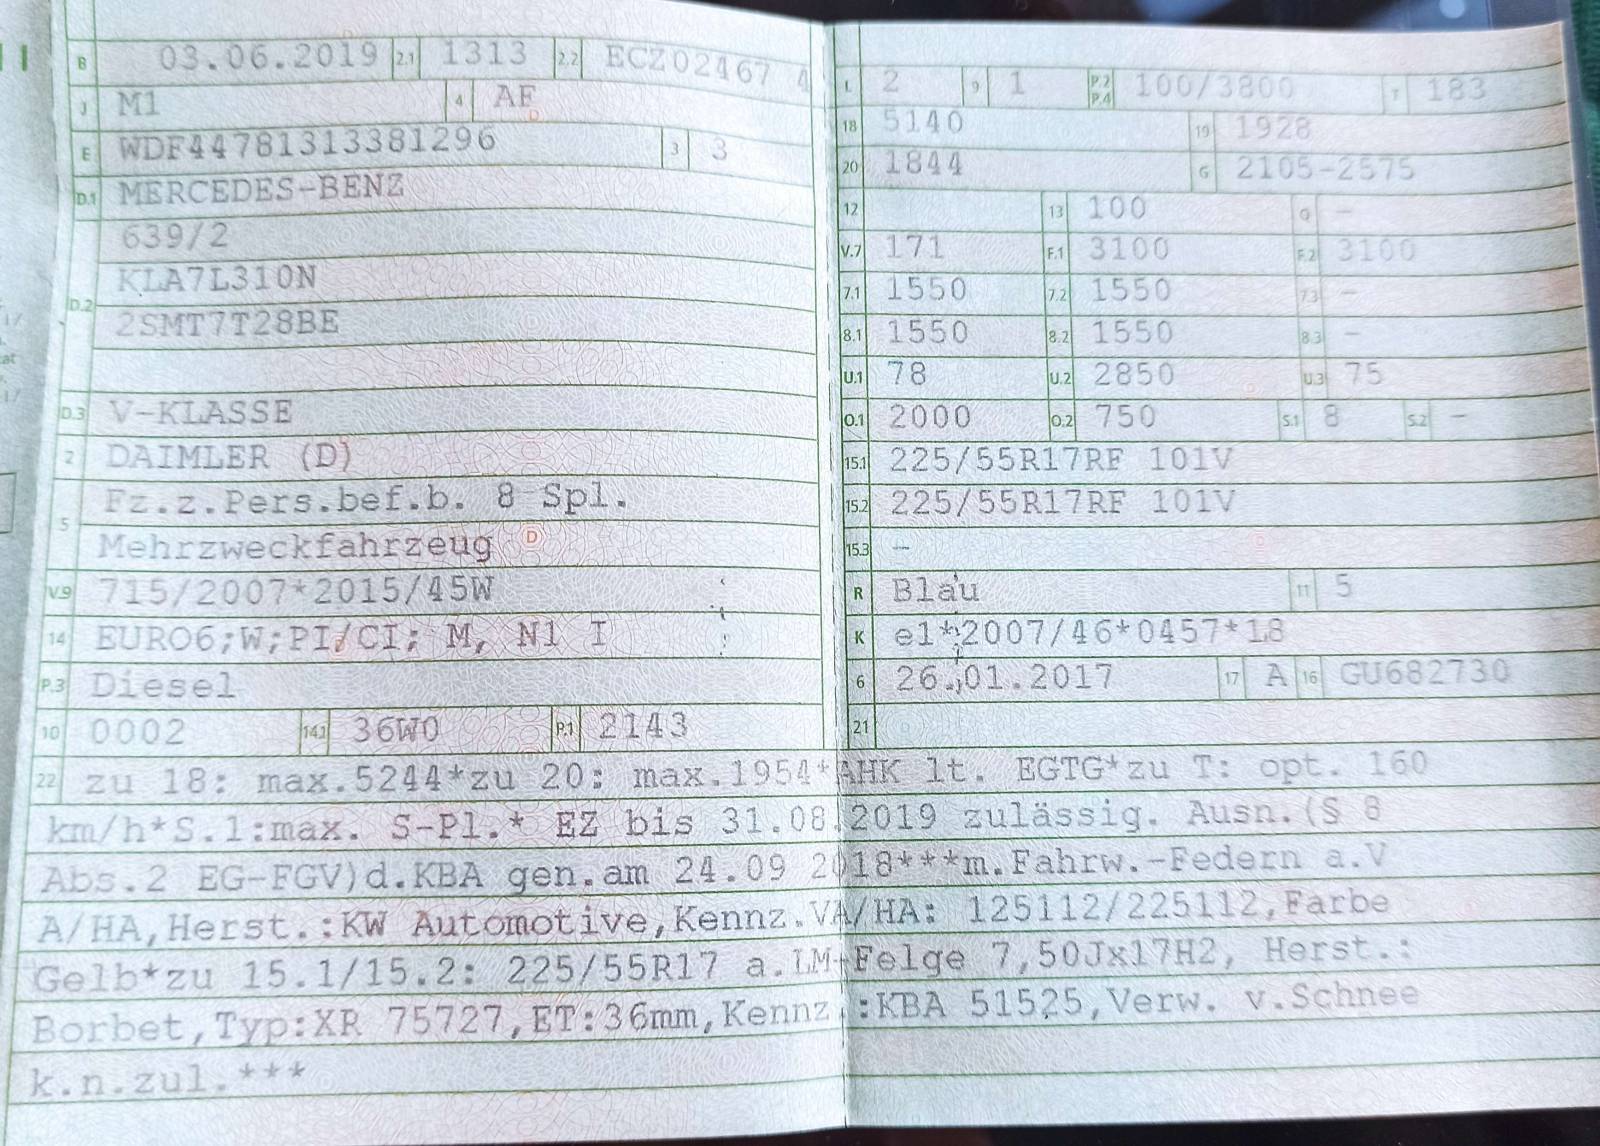 B 03.06.2019 2.1 1313 2.2 ECZ02467 4
J M1 4 AF
E WDF44781313381296 3 3
D.1 MERCEDES-BENZ
639/2
D.2 KLA7L310N
2SMT7T28BE
D.3 V-KLASSE
2 DAIMLER (D)
5 Fz.z.Pers.bef.b. 8 Spl.
Mehrzweckfahrzeug
V.9 715/2007*2015/45W
14 EURO6;W;PI/CI; M, N1 I
P.3 Diesel
10 0002 14.1 36W0 P.1 2143
L 2 9 1 P.2 P.4 100/3800 T 183
18 5140 19 1928
20 1844 G 2105-2575
12 13 100 Q -
V.7 171 F.1 3100 F.2 3100
7.1 1550 7.2 1550 7.3 -
8.1 1550 8.2 1550 8.3 -
U.1 78 U.2 2850 U.3 75
O.1 2000 O.2 750 S.1 8 S.2 -
15.1 225/55R17RF 101V
15.2 225/55R17RF 101V
15.3 -
R Blau 11 5
K e1*2007/46*0457*18
6 26.01.2017 17 A 16 GU682730
21
22 zu 18: max.5244*zu 20: max.1954*AHK lt. EGTG*zu T: opt. 160
km/h*S.1:max. S-Pl.* EZ bis 31.08.2019 zulässig. Ausn.(§ 8
Abs.2 EG-FGV)d.KBA gen.am 24.09 2018***m.Fahrw.-Federn a.V
A/HA,Herst.:KW Automotive,Kennz.VA/HA: 125112/225112,Farbe
Gelb*zu 15.1/15.2: 225/55R17 a.LM-Felge 7,50Jx17H2, Herst.:
Borbet,Typ:XR 75727,ET:36mm,Kennz.:KBA 51525,Verw. v.Schnee
k.n.zul.***